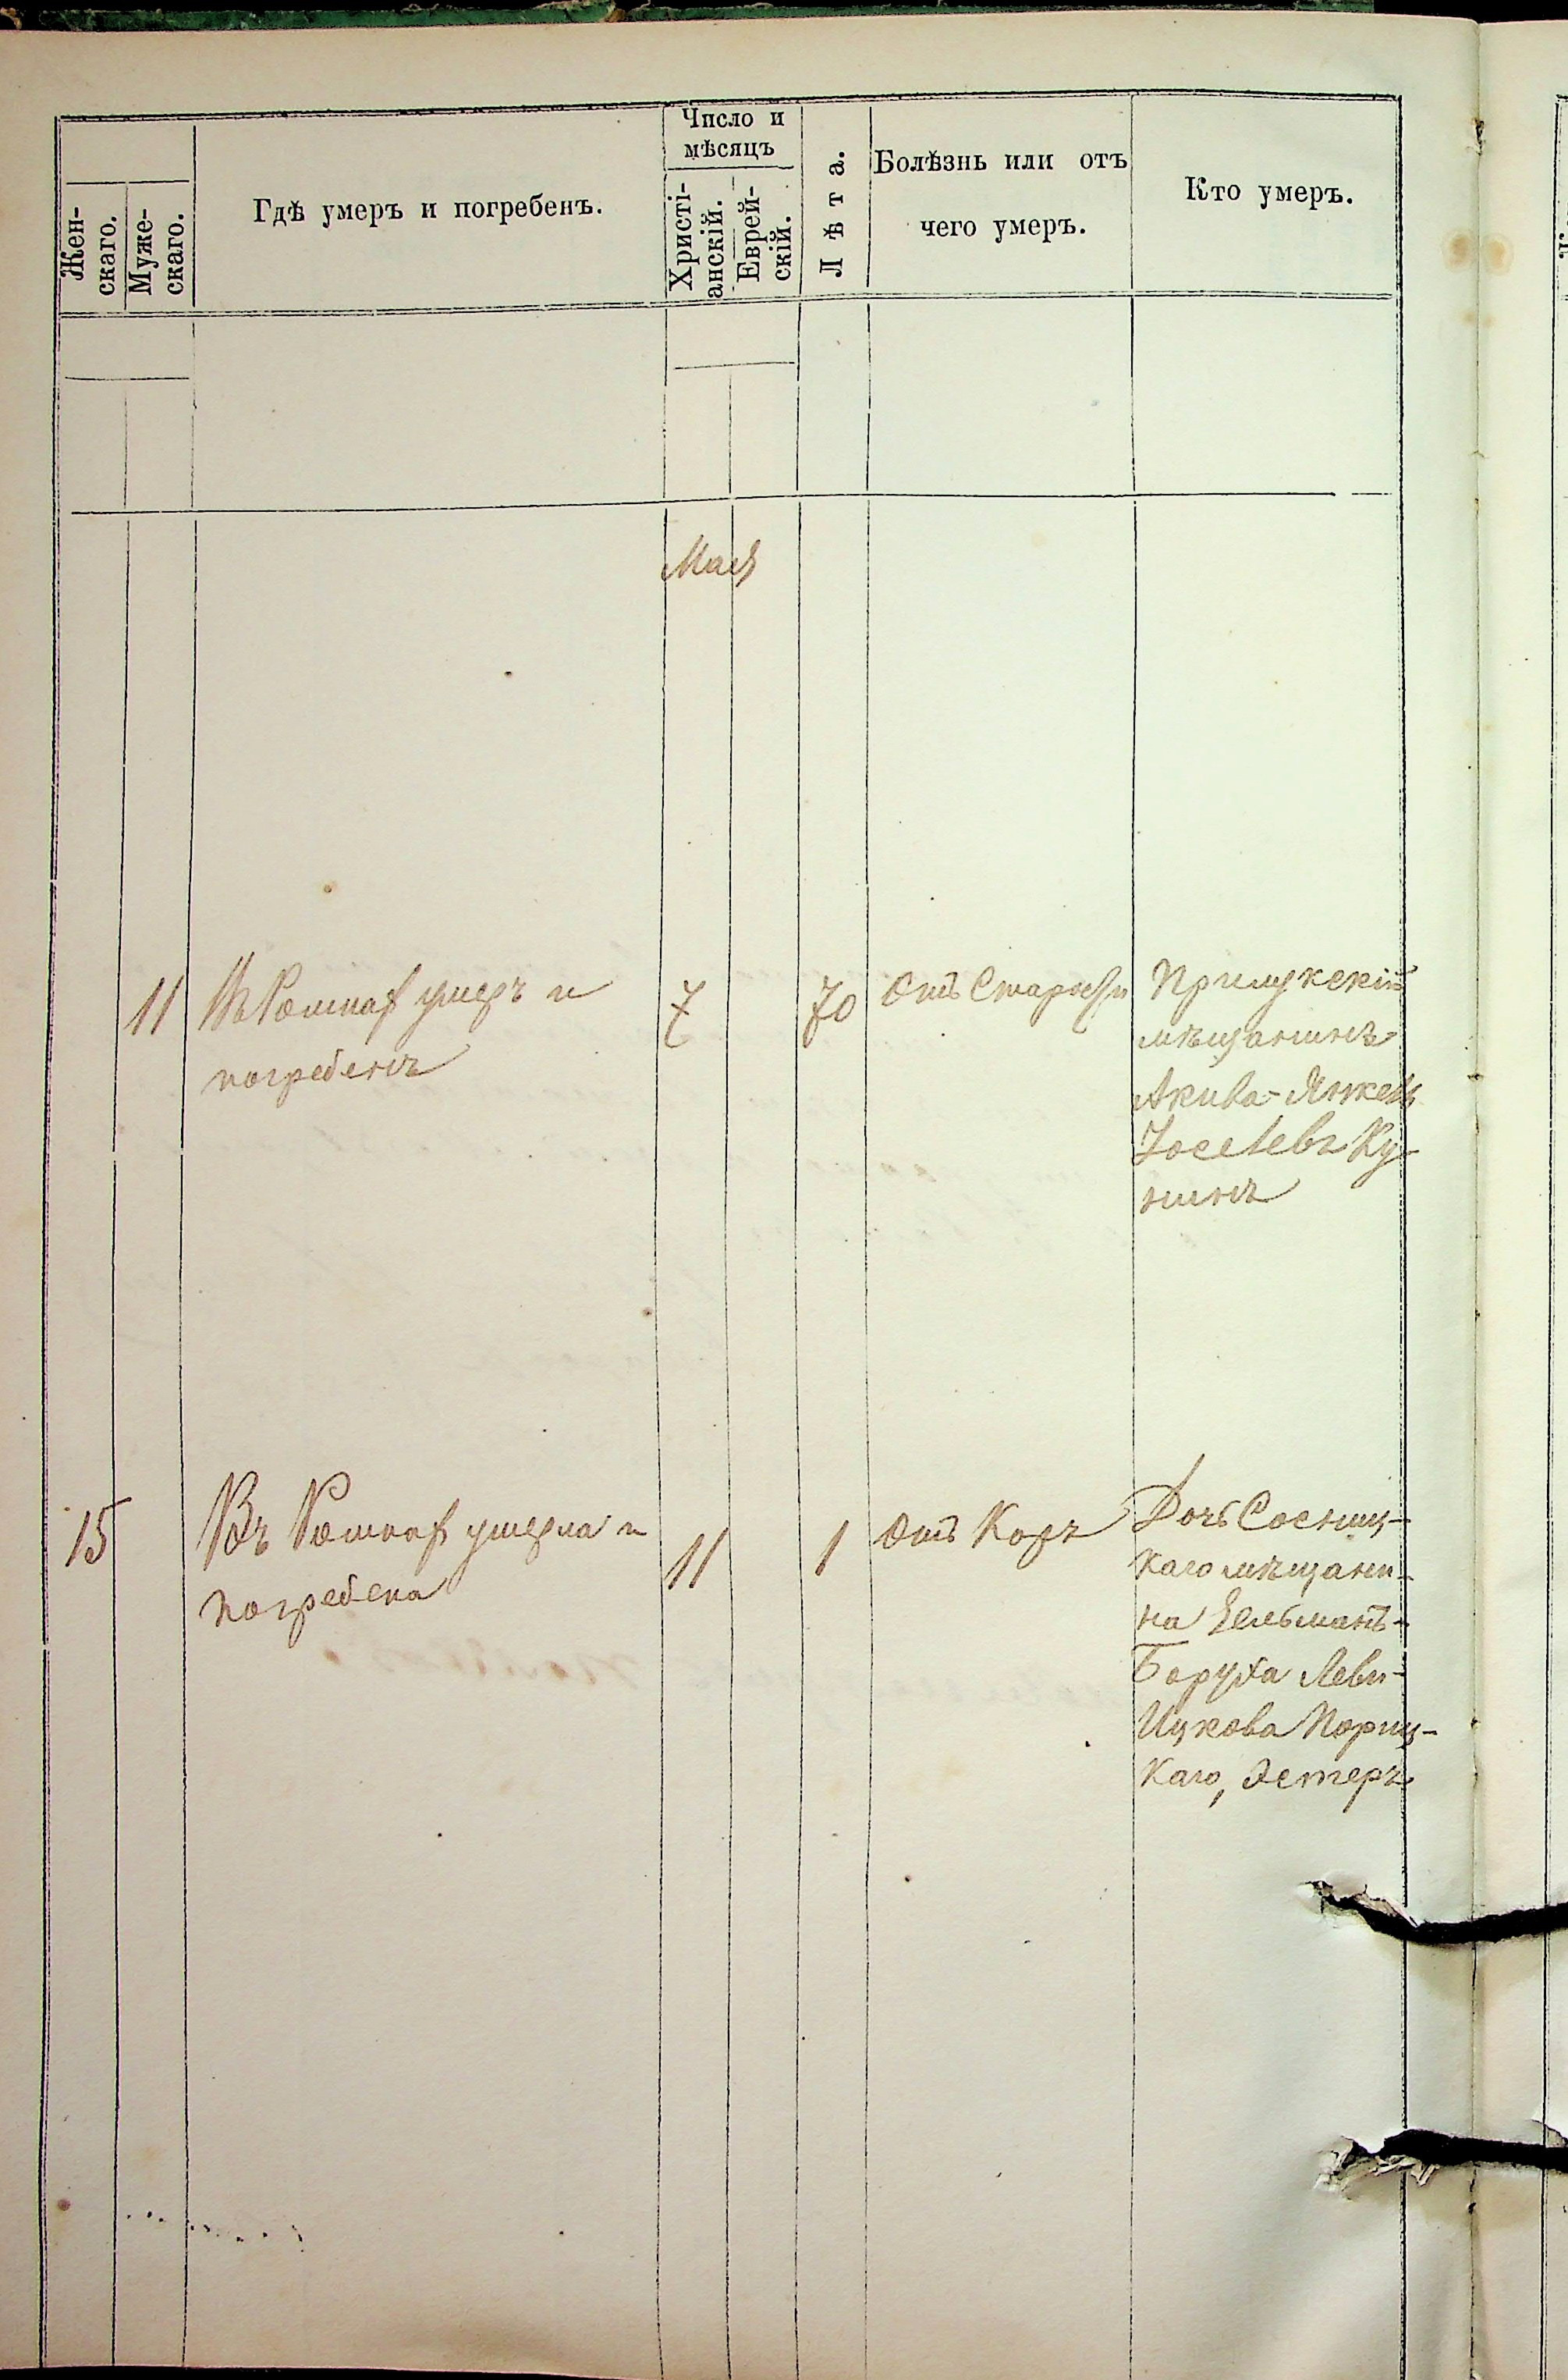 Жен-
скаго.
Муже-
скаго.
Гдѣ умеръ и погребенъ.
Число и
мѣсяцъ
Христі-
анскій.
Еврей-
скій.
Лѣта.
Болѣзнь или отъ
чего умеръ.
Кто умеръ.
Мая
11
Въ Ромнах умеръ и
погребенъ
7
70
Отъ Старости
Прилукскій
мѣщанинъ
Акива-Янкель
Іоселевъ Ку-
нинъ
15
Въ Ромнах умерла и
погребена
11
1
Отъ Корь
Дочь Сосниц-
каго мѣщани-
на
Боруха Леви-
Ицкова Пориц-
каго, Эстеръ